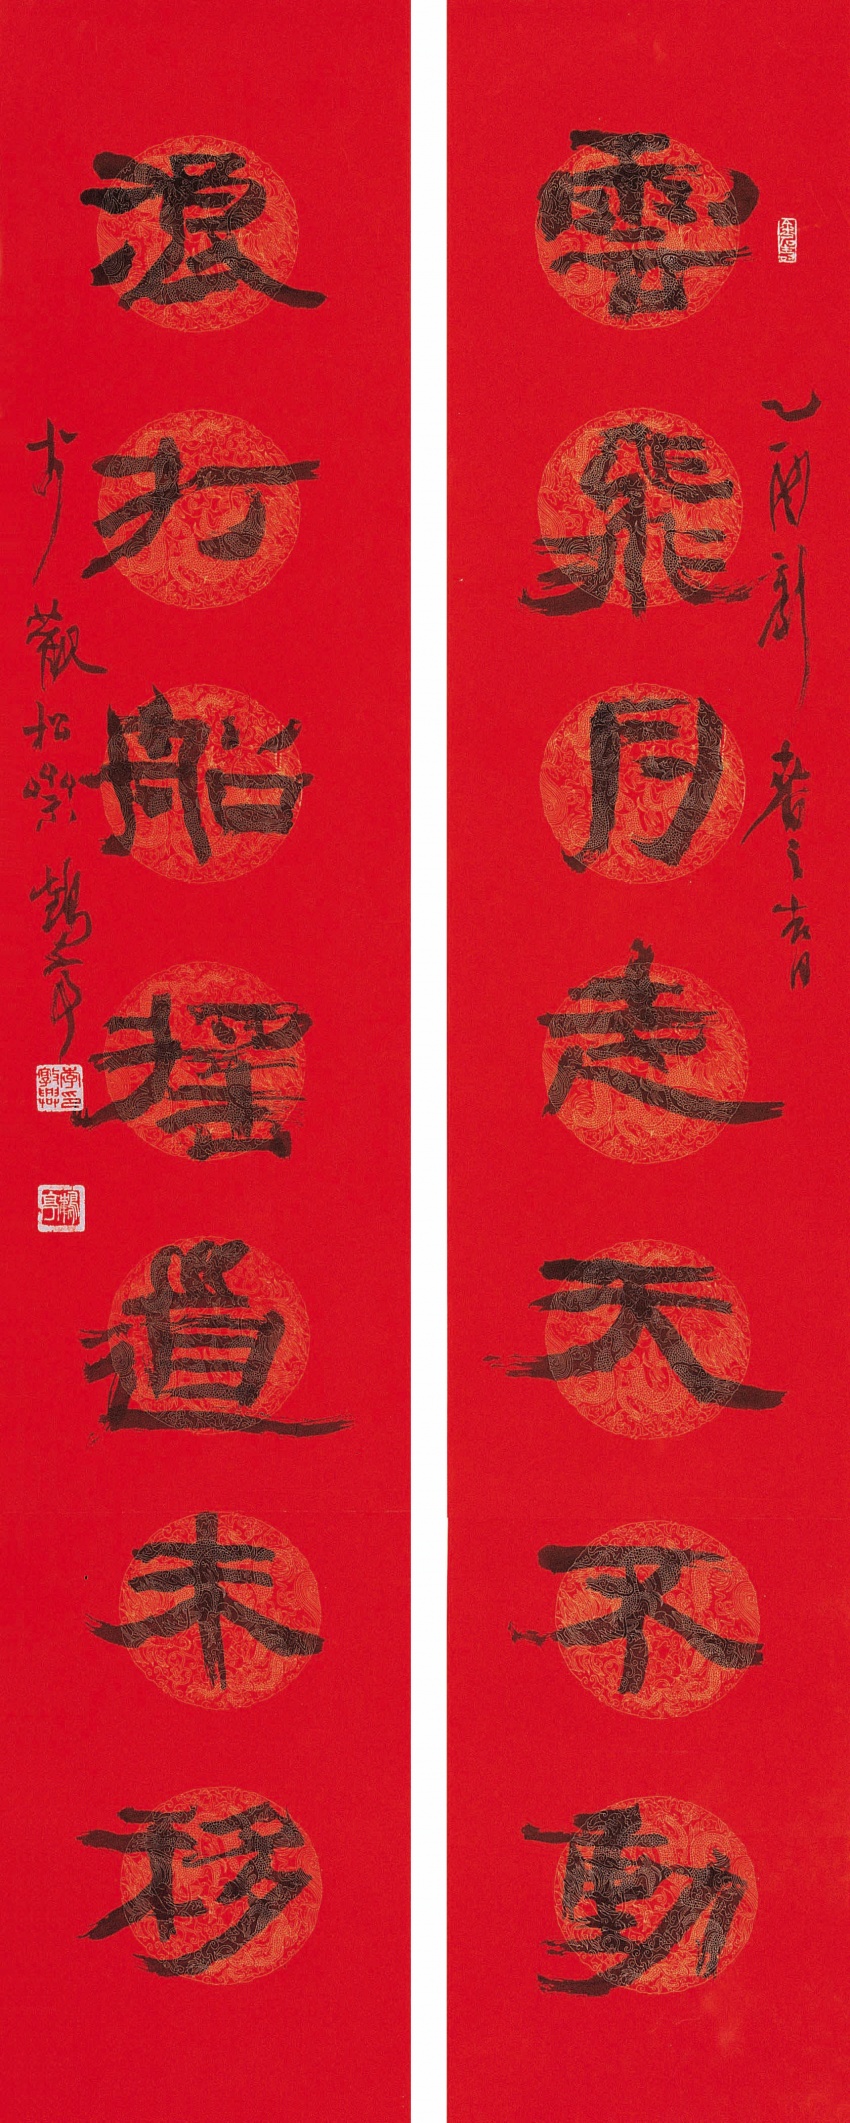 乙酉新春之吉月
雲飛月走天不動
浪打船搖道未移
觀松樂 鶴亭
鶴亭